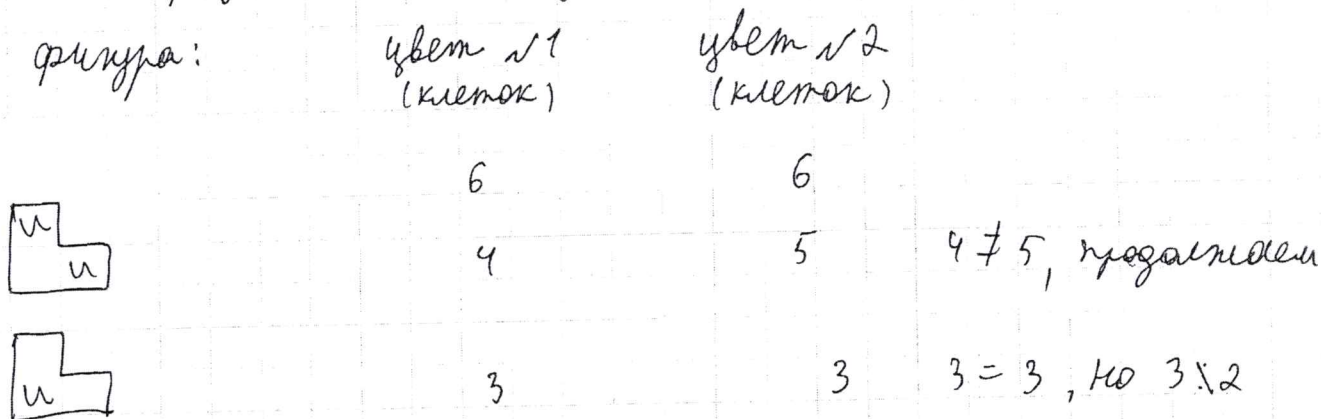 фигура: цвет №1 цвет №2
(клеток) (клеток)
6 6
и
и 4 5 4 ≠ 5, продолжаем
и 3 3 3 = 3, но 3 \ 2